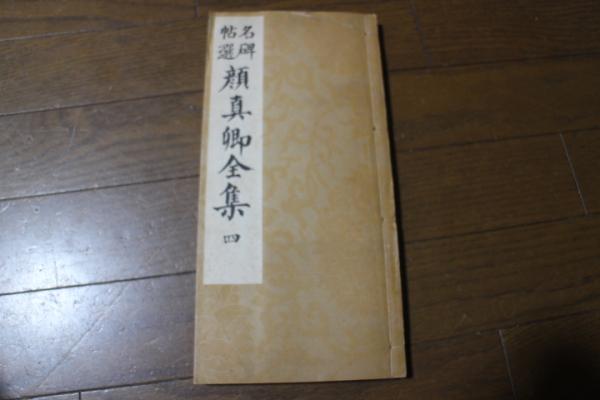 名碑
帖選
顔真卿全集
四